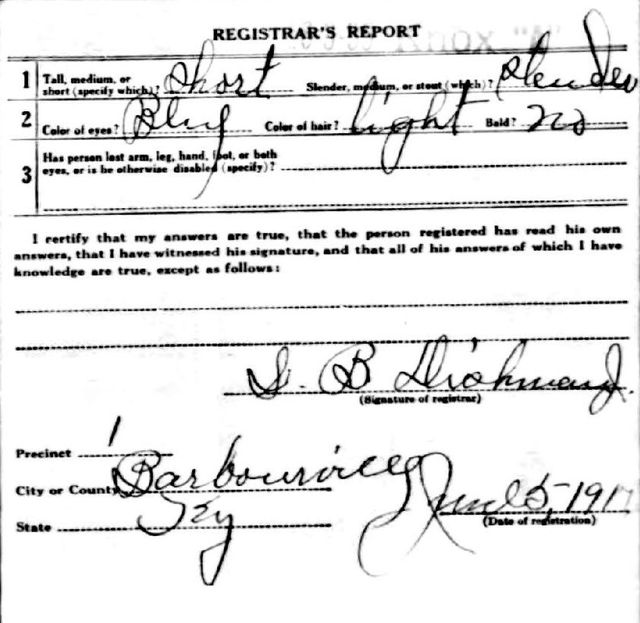 REGISTRAR'S REPORT
1 Tall, medium, or short (specify which)? Short Slender, medium, or stout (which)? Slender
2 Color of eyes? Blu Color of hair? light Bald? no
3 Has person lost arm, leg, hand, foot, or both eyes, or is he otherwise disabled (specify)?
I certify that my answers are true, that the person registered has read his own
answers, that I have witnessed his signature, and that all of his answers of which I have
knowledge are true, except as follows:
S. B Dishman Jr.
(Signature of registrar)
Precinct 1
City or County Barbourville
State Ky June 5, 1917
(Date of registration)